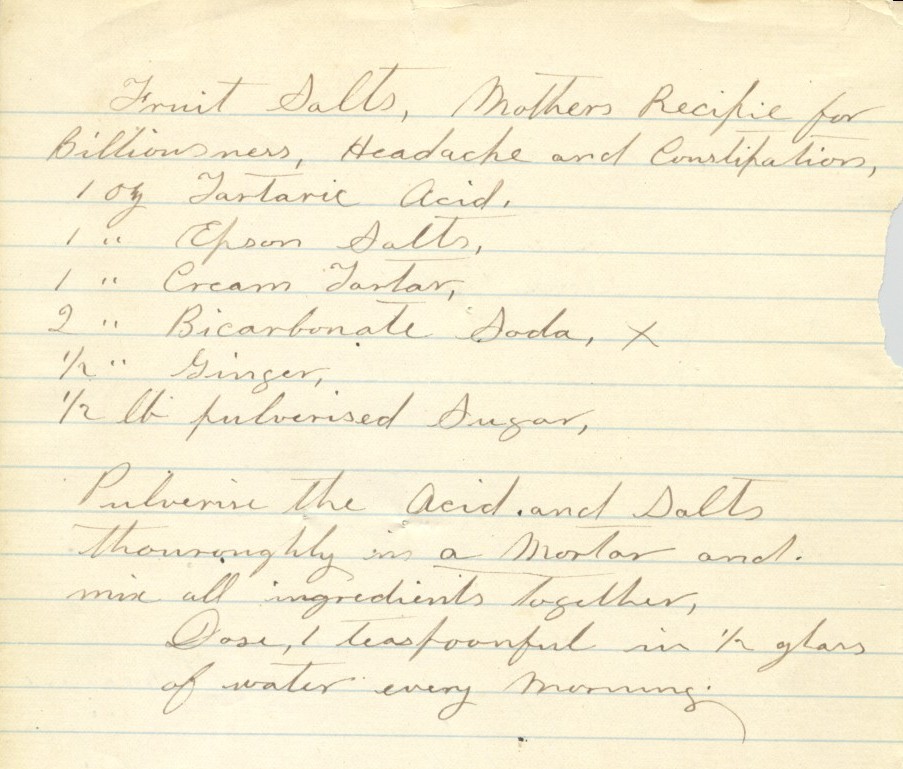 Fruit Salts, Mothers Recipie for
Billiousness, Headache and Constipation,
1 oz Tartaric Acid.
1 " Epson Salts,
1 " Cream Tartar,
2 " Bicarbonate Soda, X
1/2 " Ginger,
1/2 lb pulverised Sugar,
Pulverise the Acid and Salts
thouroughly in a Mortar and.
mix all ingredients together,
Dose, 1 teaspoonful in 1/2 glass
of water every Morning.